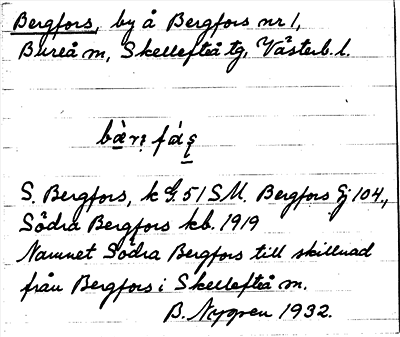 Bergfors, by å Bergfors nr 1,
Bureå sn, Skellefteå tg, Västerb. l.
S. Bergfors, k G. 51 SM. Bergfors Gj 104.,
Södra Bergfors kb. 1919
Namnet Södra Bergfors till skillnad
från Bergfors i Skellefteå sn.
B. Nygren 1932.